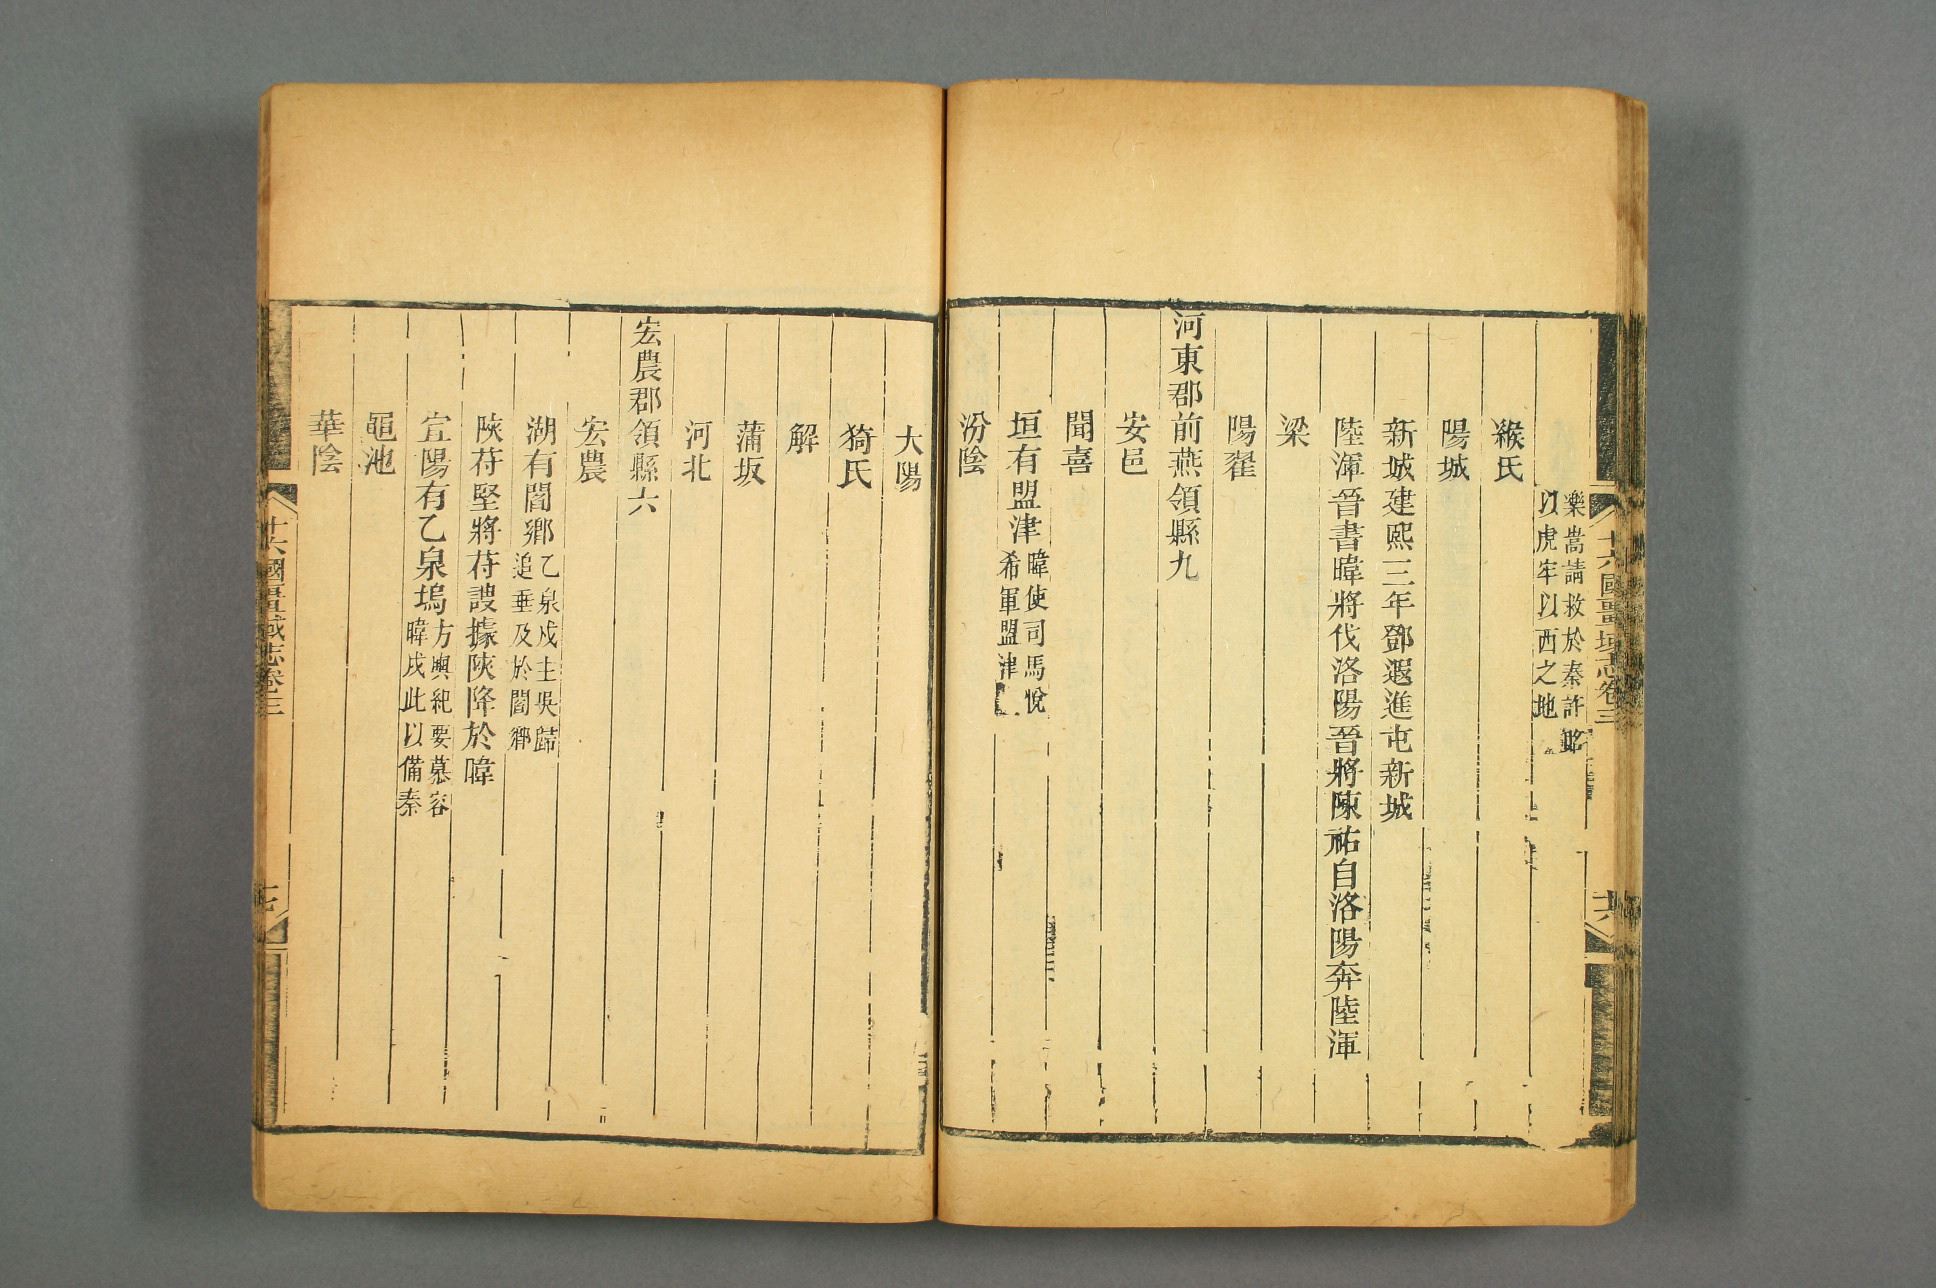 樂嵩請救於秦許賂
以虎牢以西之地
緱氏
陽城
新城建熙三年鄧遐進屯新城
陸渾晉書暐將伐洛陽晉將陳祐自洛陽奔陸渾
梁
陽翟
河東郡前燕領縣九
安邑
聞喜
垣有盟津暐使司馬悅
希軍盟津
汾陰
十六國疆域志卷三
十六
大陽
猗氏
解
蒲坂
河北
宏農郡領縣六
宏農
湖有閿鄉乙泉戍主吳歸
追垂及於閿鄉
陜苻堅將苻謏據陜降於暐
宜陽有乙泉塢方輿紀要慕容
暐戍此以備秦
黽池
華陰
十六國疆域志卷三
十七